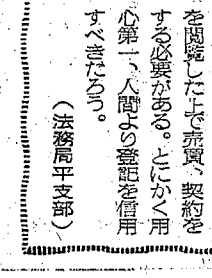 を閲覧した上で売買、契約を
する必要がある。とにかく用
心第一、人間より登記を信用
すべきだろう。
（法務局平支部）